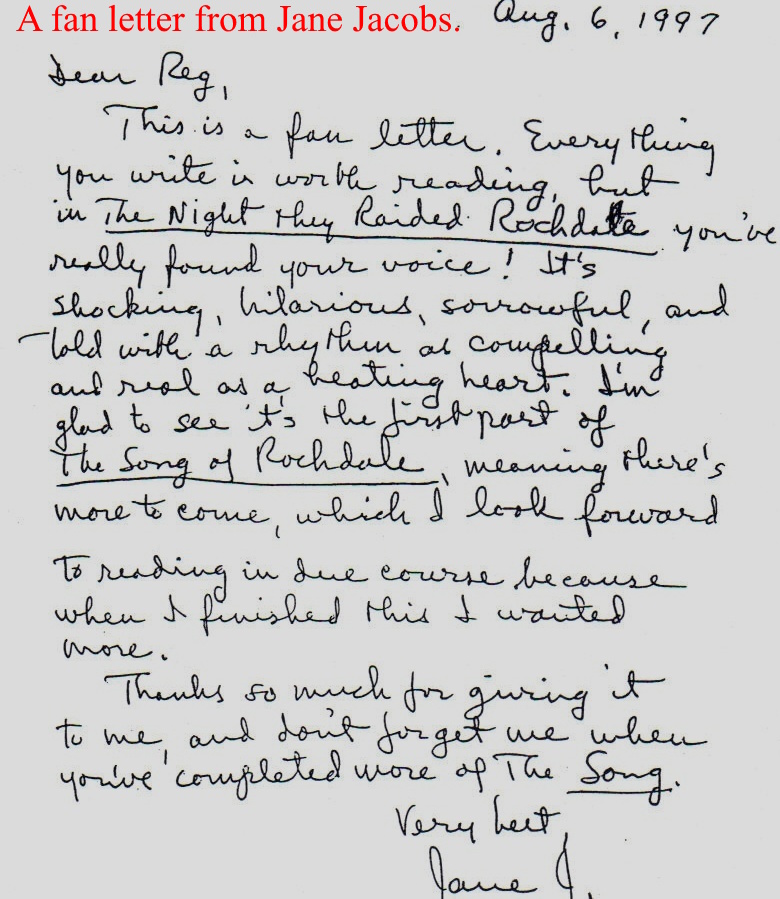 A fan letter from Jane Jacobs. Aug. 6, 1997
Dear Reg,
This is a fan letter. Everything
you write is worth reading, but
in The Night they Raided Rochdale you've
really found your voice! It's
shocking, hilarious, sorrowful, and
told with a rhythm as compelling
and real as a beating heart. I'm
glad to see it's the first part of
The Song of Rochdale, meaning there's
more to come, which I look forward
to reading in due course because
when I finished this I wanted
more.
Thanks so much for giving it
to me, and don't forget me when
you've completed more of The Song.
Very best,
Jane J.